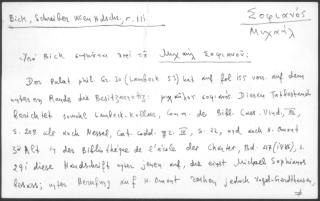 Bick, Schreiber Wien. Hdschr., n. 111
Σοφιανός
Μιχαήλ
Ὑπὸ Bick σημειοῦται περὶ τοῦ Μιχαὴλ Σοφιανοῦ:
Der Palat phil. Gr. 30 (Lambeck 53) hat auf fol 157 von. auf dem
unteren Rande die Besitzernotiz: μιχαῆλος σοφιανός. Diesen Tatbestand
berichtet sowohl Lambeck-Kollar, Comm. de Bibl. Caes. Vind.,
S. 208 als auch Nessel, Cat. codd. S. 22, und auch H. Omont
in der Bibliothèque de l'école de Chartes, Bd. 47 (1886), S.
diese Handschrift unter jenen auf, die einst Michael Sophianos
besass; unter Berufung auf H. Omont zählen jedoch Vogel-Gardthausen,